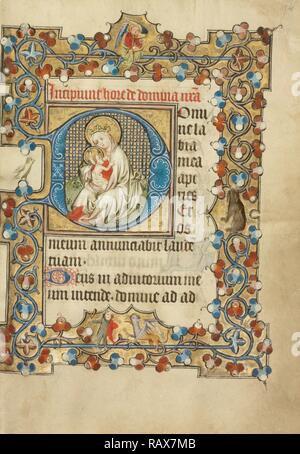 Incipiunt hore de domina nr̄a
Domi
ne la
bia
mea
ape
ries
Et os
meum annunciabit laudē
tuam.
Deus in adiutorium me
um intende. domine ad ad
alamy
Image ID: RAX7MB
www.alamy.com